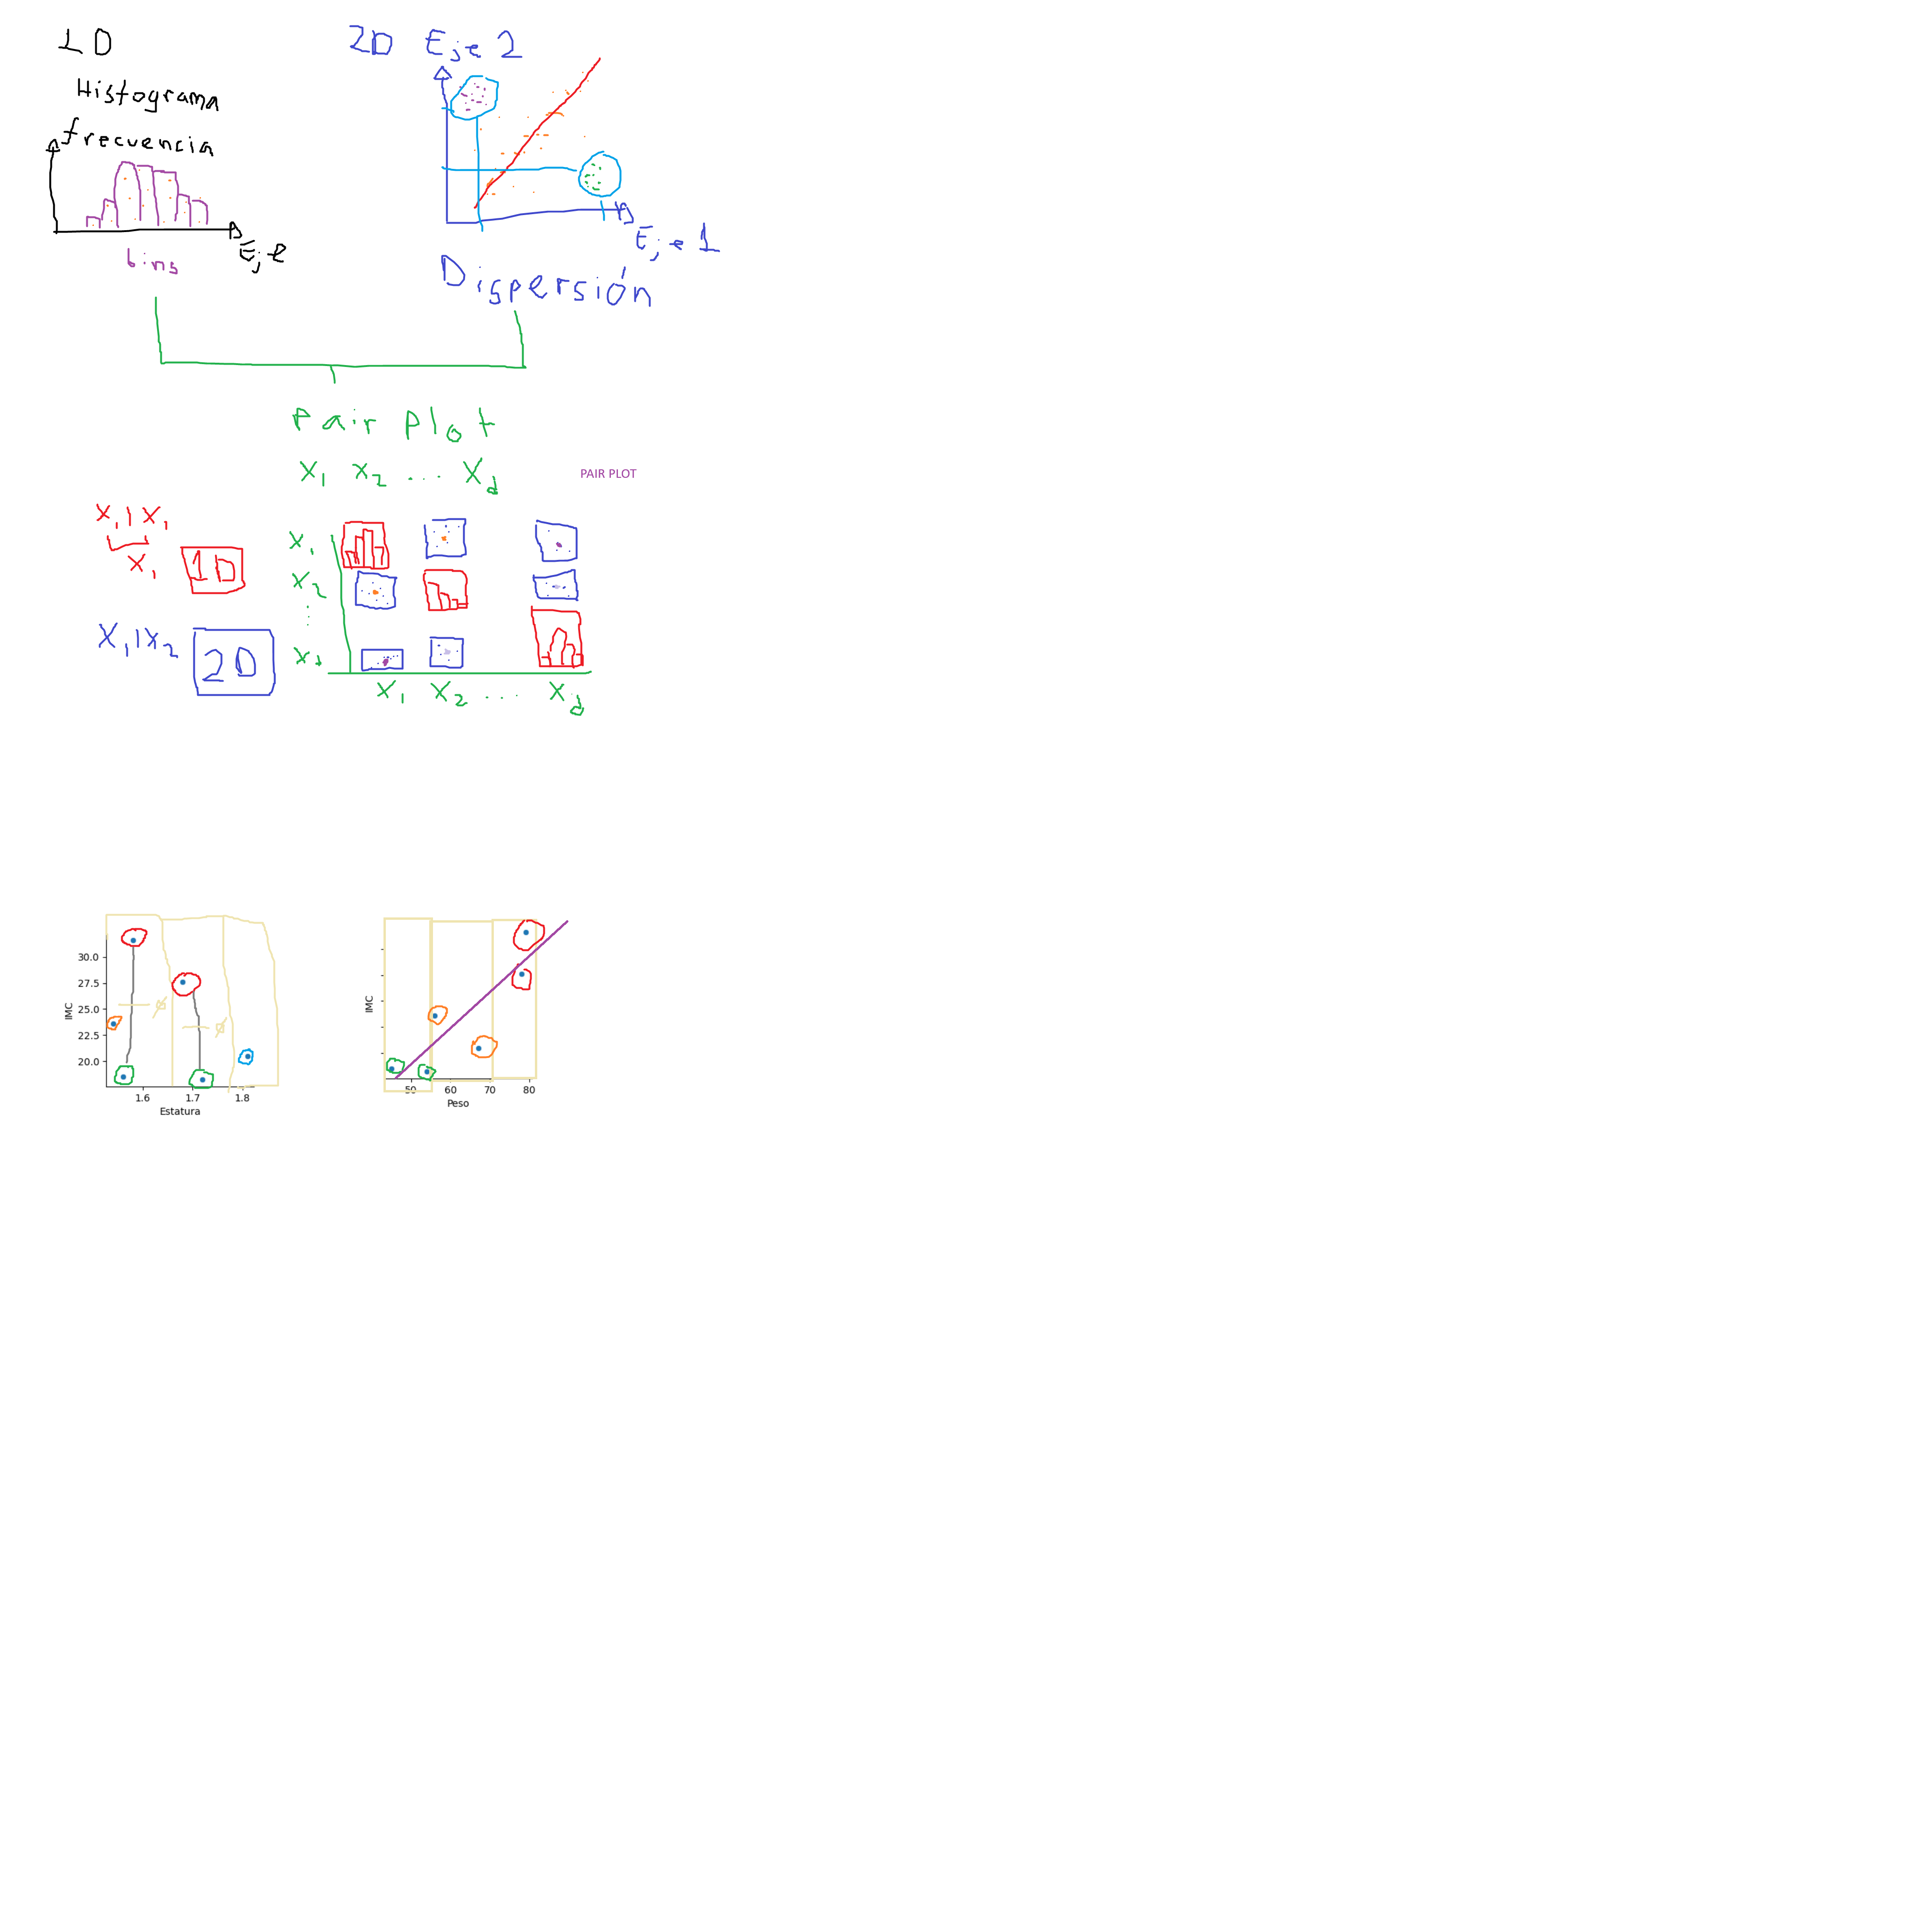 1D
Histograma
frecuencia
Eje
bins
2D Eje 2
Eje 1
Dispersión
Pair plot
X1 X2 ... Xd
PAIR PLOT
X1 | X1
X1
1D
X1 | X2
2D
X1
X2
⋮
Xd
X1 X2 ... Xd
IMC
30.0
27.5
25.0
22.5
20.0
1.6 1.7 1.8
Estatura
IMC
50 60 70 80
Peso